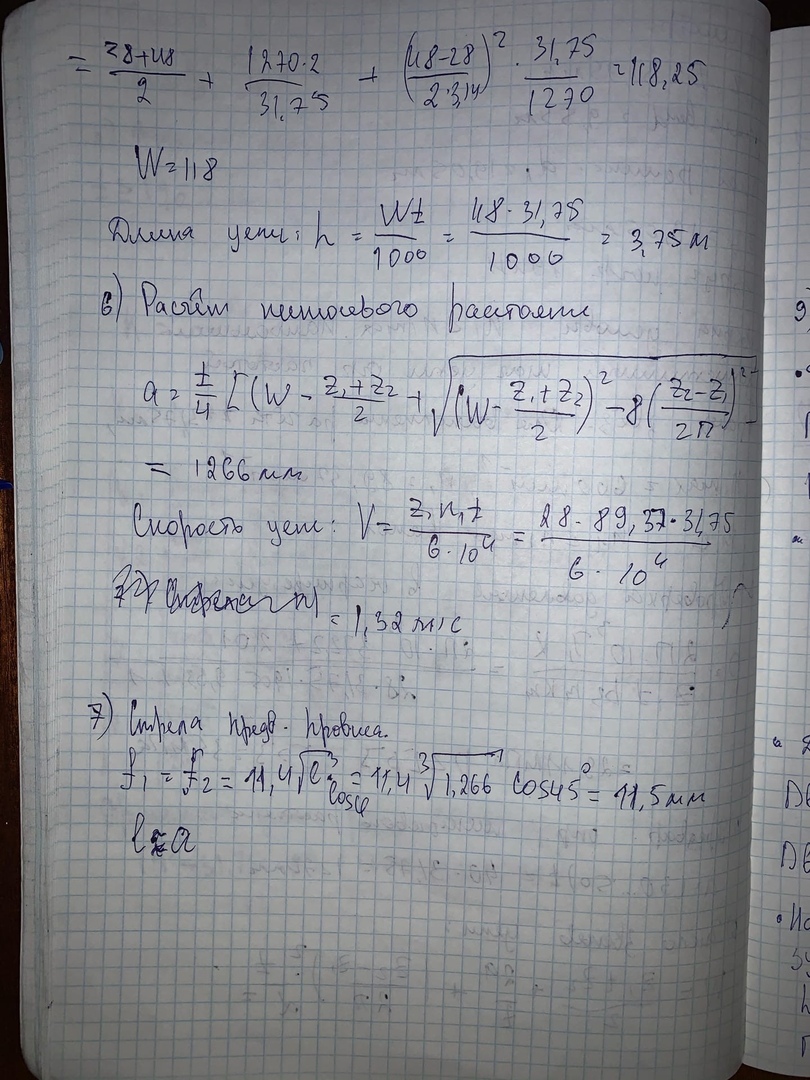 = 28+48/2 + 1270·2/31,75 + (48-28/2·3,14)² · 31,75/1270 = 118,25
W=118
Длина цепи: L = Wt/1000 = 118·31,75/1000 = 3,75м
6) Расчёт межосевого расстояния
a = t/4 [(W - z₁+z₂/2 + √(W- z₁+z₂/2)² -8(z₂-z₁/2π)²]
= 1266 мм
Скорость цепи: V= z₁n₁t/6·10⁴ = 28·89,37·31,75/6·10⁴
= 1,32 м/с
7) Стрела предв. провиса.
f₁ = f₂ = 11,4√l³·cosφ = 11,4 ³√1,266 cos45° = 11,5мм
l=a
9
Дв
Дв